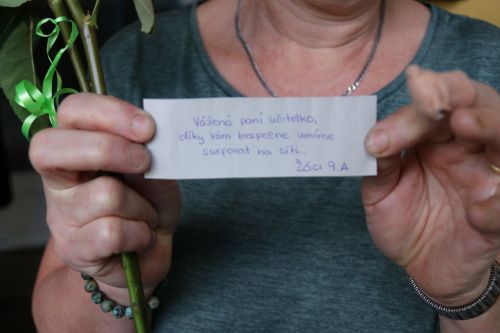 Vážená paní učitelko,
díky Vám bezpečně umíme
surfovat na síti.
Žáci 9.A